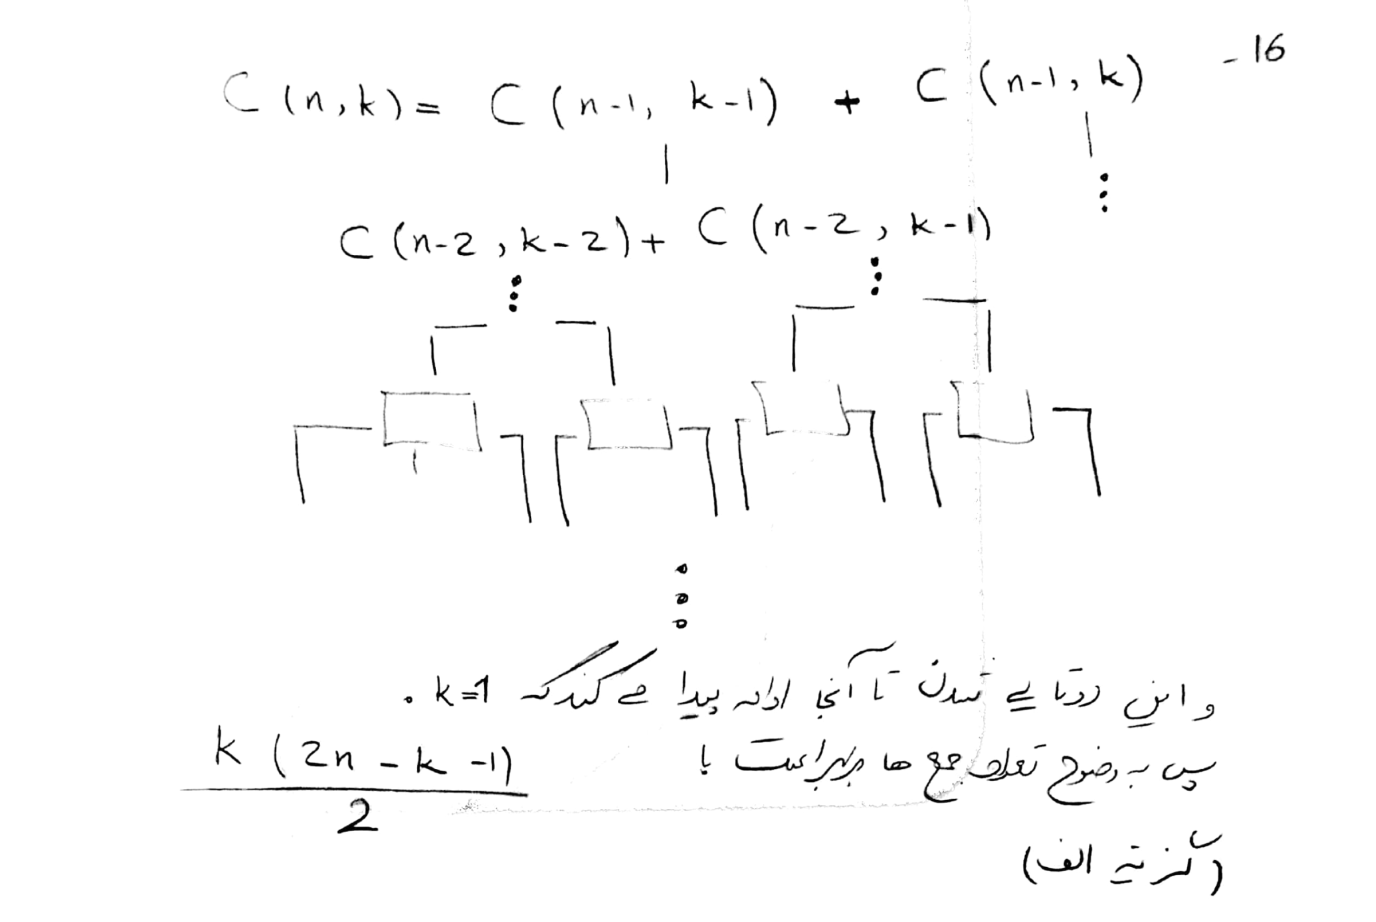 16 -
C (n, k) = C (n-1, k-1) + C (n-1, k)
C (n-2, k-2) + C (n-2, k-1)
و این دوتایی شدن تا آنجا ادامه پیدا می کند که k=1.
پس به وضوح تعداد جمع ها برابر است با k (2n - k - 1) / 2
(گزینه الف)